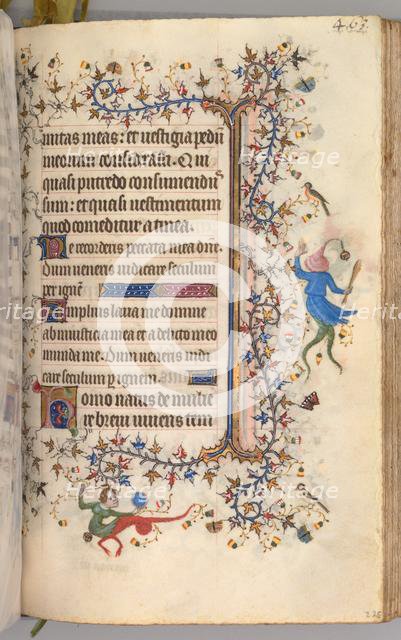 467
mitas meas: et vestigia pedū
meorum considerasti. Qui
quasi putredo consumendus
sum: et quasi vestimentum
quod comeditur a tinea.
Ne recorderis peccata mea dñe.
Dum veneris iudicare seculum
per ignē.
Amplius lava me domine
ab iniusticia mea et a delicto meo
munda me. Dum veneris iudi
care seculum per ignem.
Homo natus de mulie
re brevi vivens tem
Heritage
Images
228